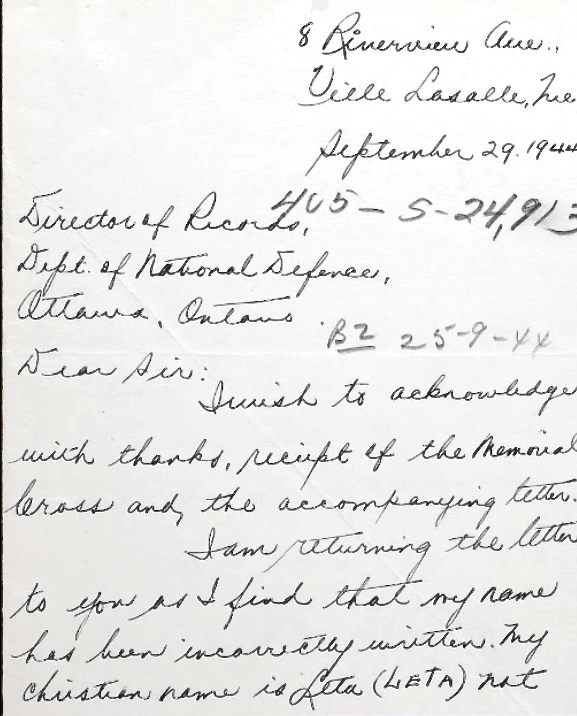 8 Riverview Ave.,
Ville Lasalle, Que
September 29. 1944
405 - S-24,913
Director of Records,
Dept. of National Defence,
Ottawa, Ontario
B2 25-9-44
Dear Sir:
I wish to acknowledge
with thanks, reciept of the Memorial
Cross and, the accompanying letter.
I am returning the letter
to you as I find that my name
has been incorrectly written. My
christian name is Leta (LETA) not